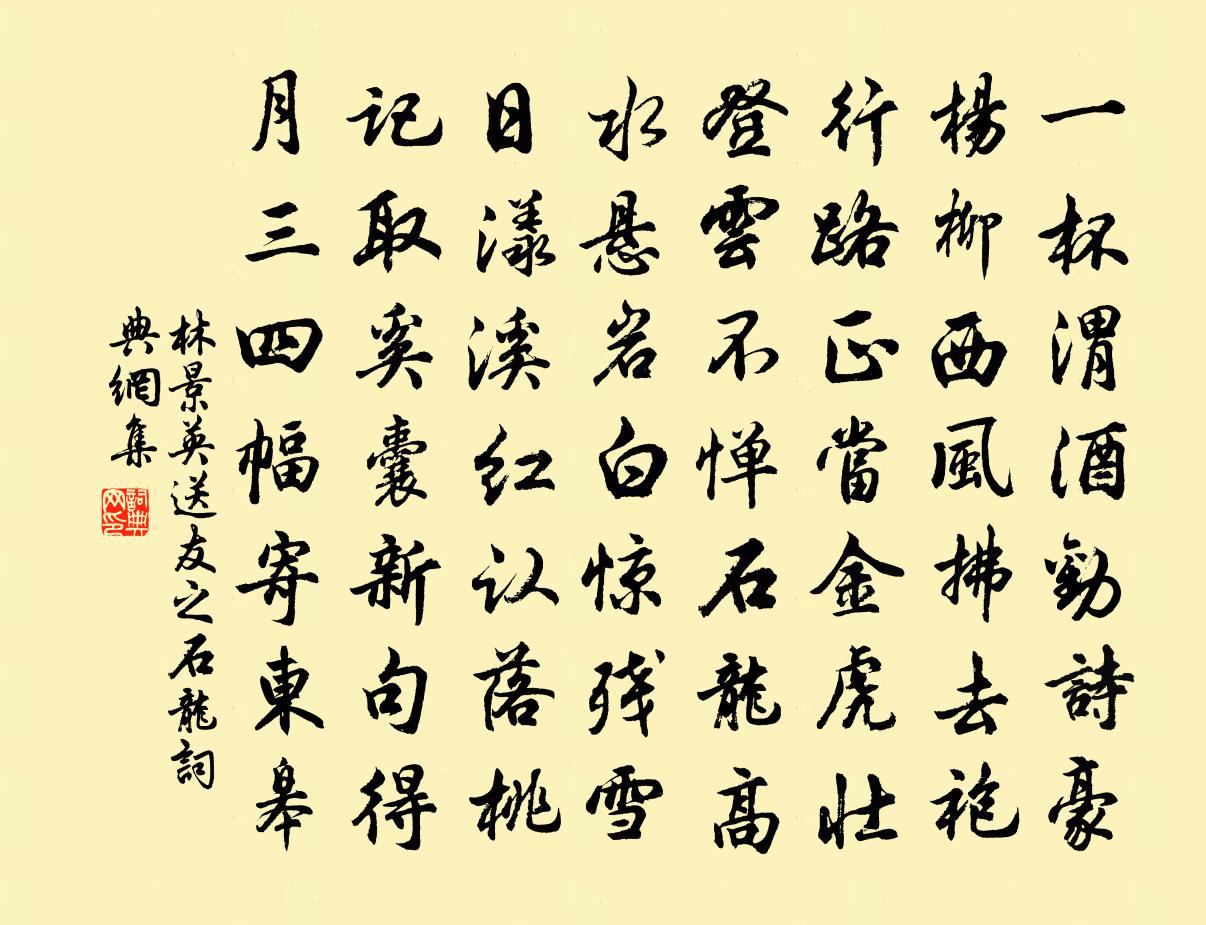 一杯渭酒勸詩豪
楊柳西風拂去袍
行路正當金虎壯
登雲不惮石龍高
水悬岩白惊残雪
日漾溪红认落桃
记取奚囊新句得
月三四幅寄東皋
林景英送友之石龍詞
典網集
詞典
网印